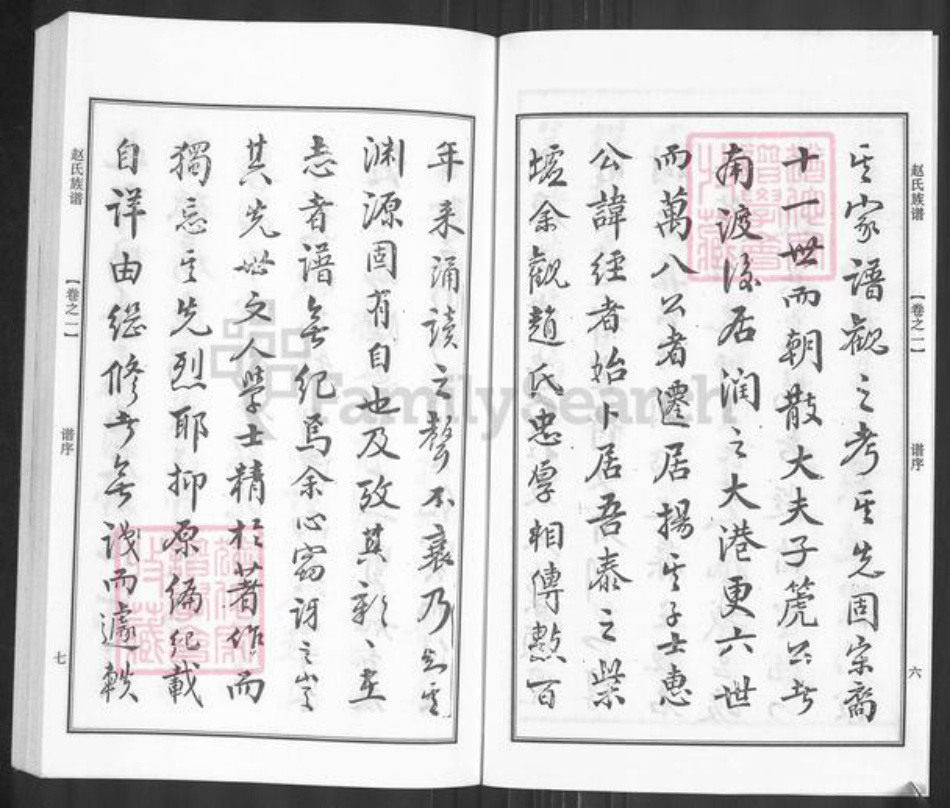 赵氏族谱
【卷之一】
谱序
六
其家谱观之考其先固宋裔
十一世而朝散大夫子箎公者
南渡後居润之大港更六世
而萬八公者遷居揚其子士惠
公諱經者始卜居吾泰之柴
墟余觀趙氏忠厚相傳熬百
年来诵读之聲不衰乃知其
渊源固有自也及孜其彰彰在
志者谱無纪焉余心窃讶之岂
其先世文人学士精於著作而
獨忘其先烈耶抑原编纪載
自详由继修者無识而遽軼
赵氏族谱
【卷之一】
谱序
七
FamilySearch